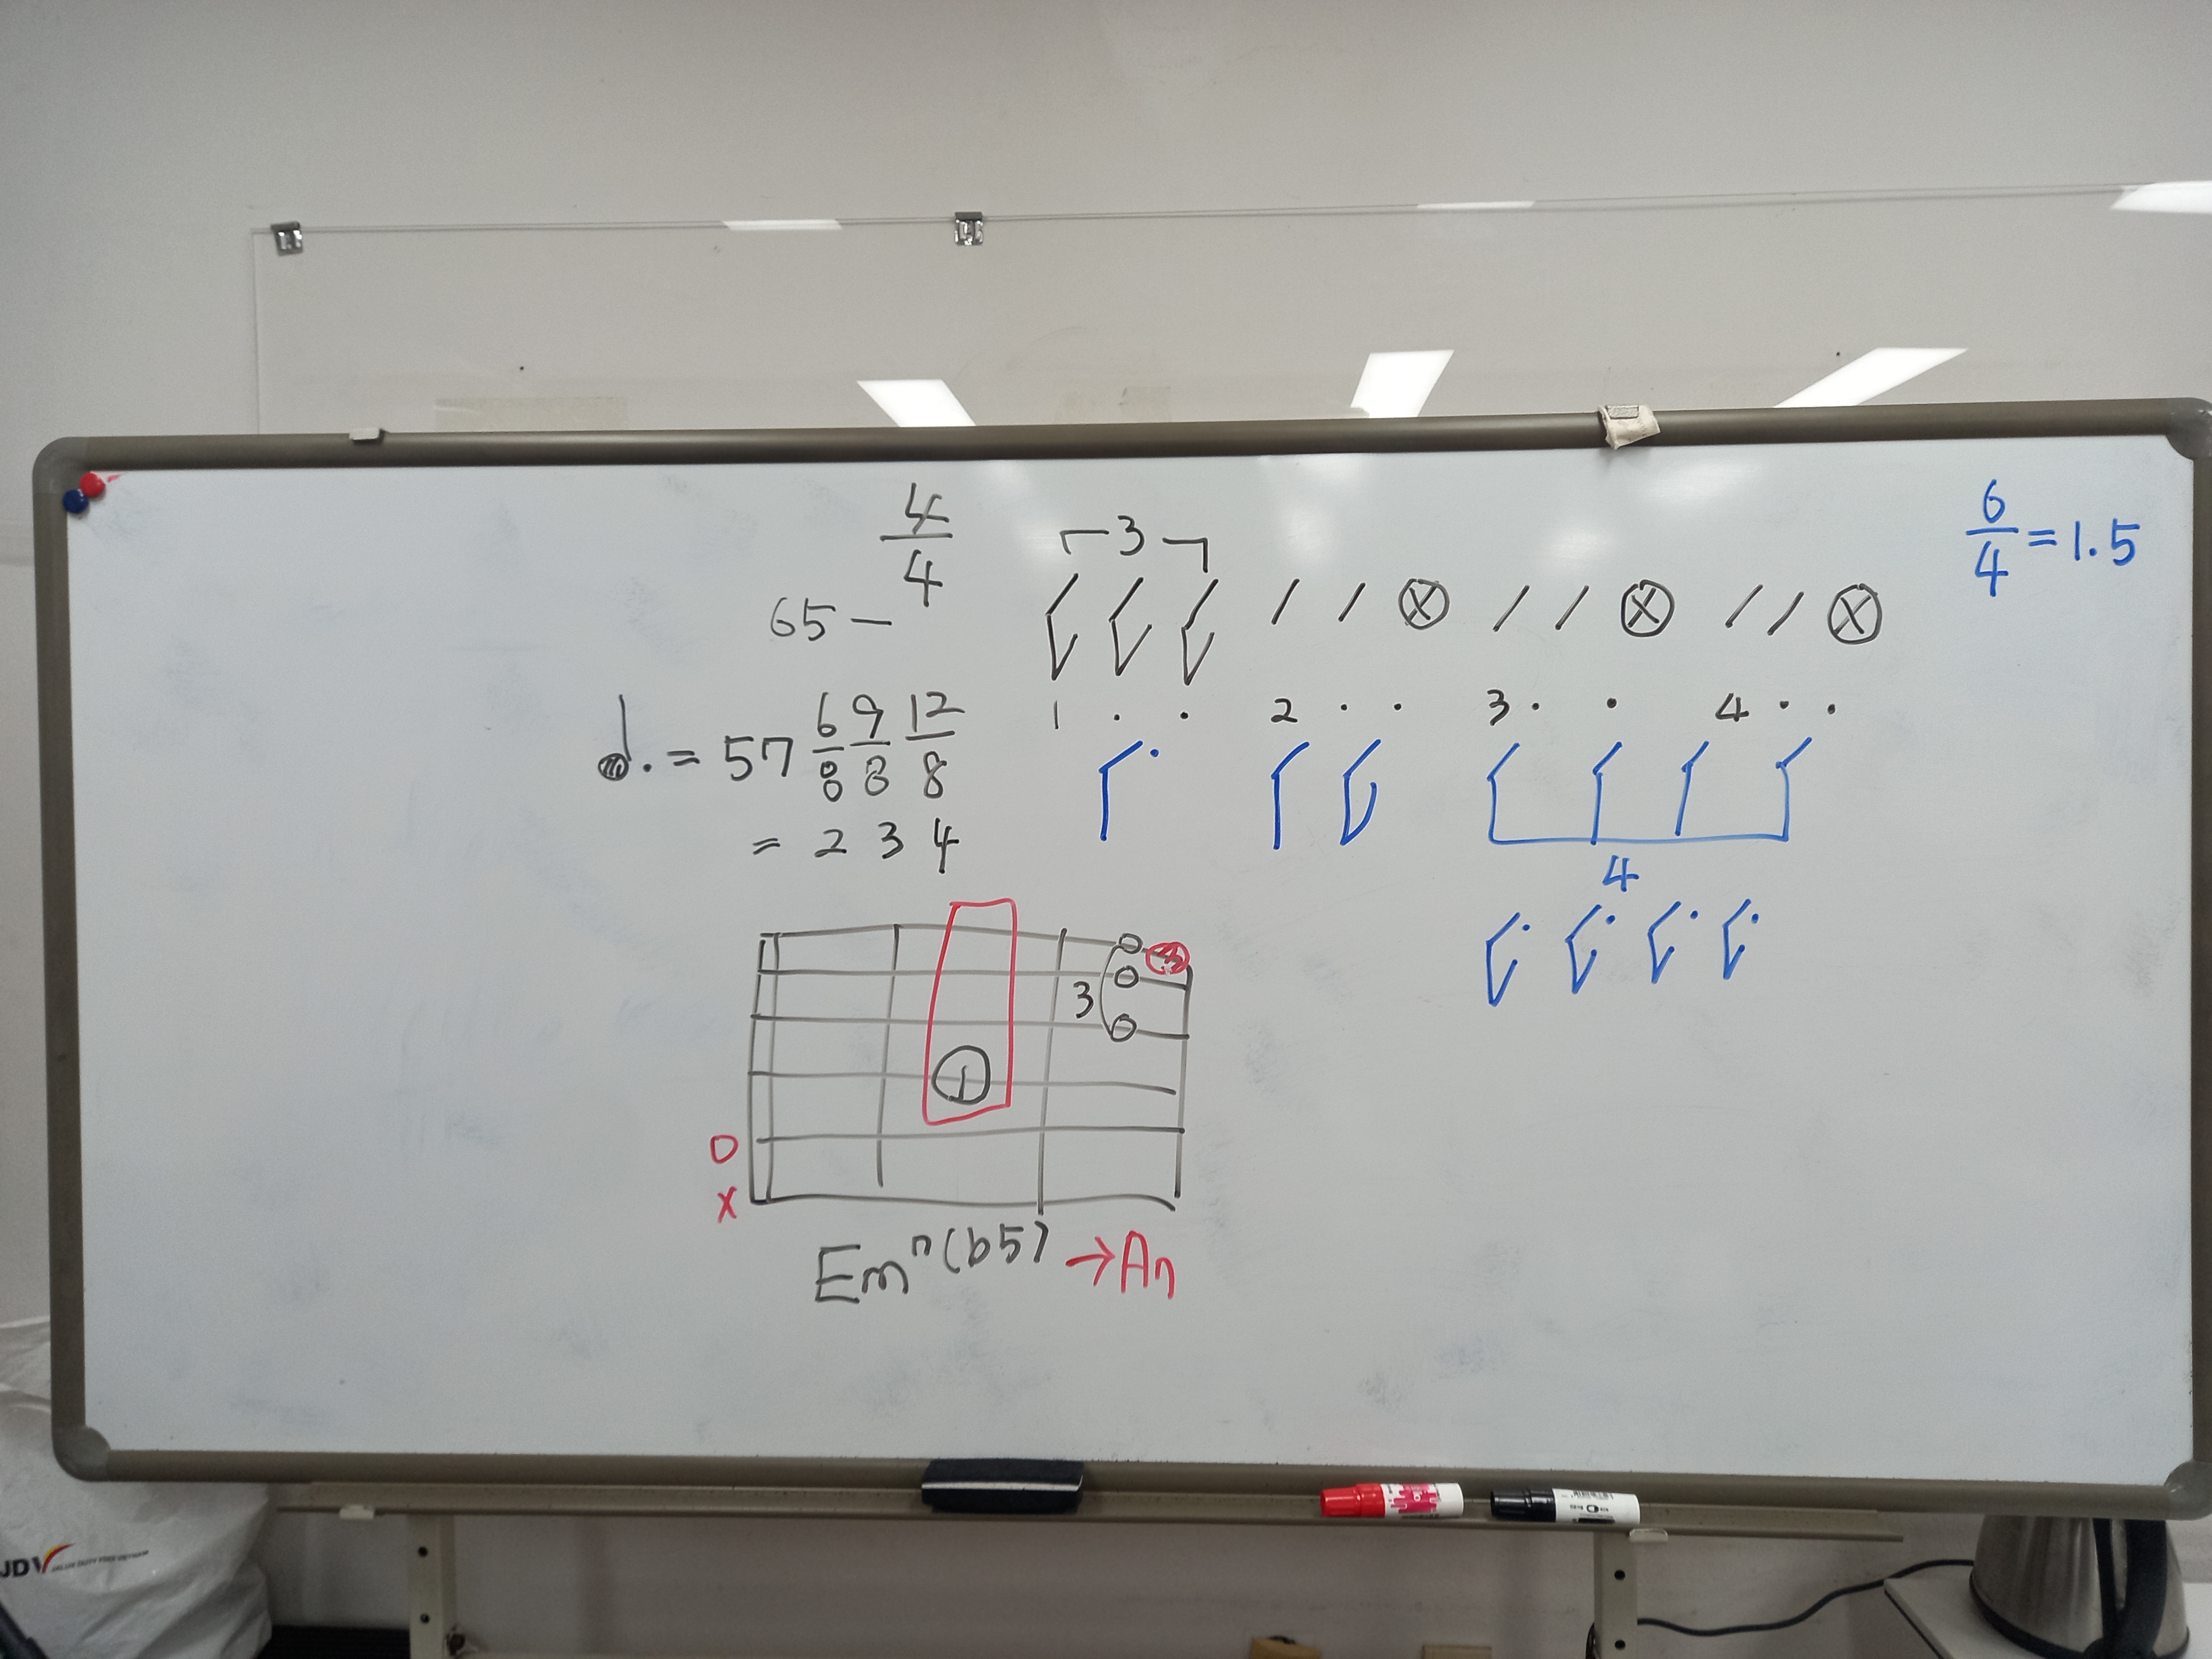 4/4
┌ 3 ┐
6/4 = 1.5
65 —
/ / ⓧ / / ⓧ / / ⓧ
♩. = 57 6/8 9/8 12/8
1 · · 2 · · 3 · · 4 · ·
= 2 3 4
4
3
4
1
O
X
Em7(b5) → A7
JDV